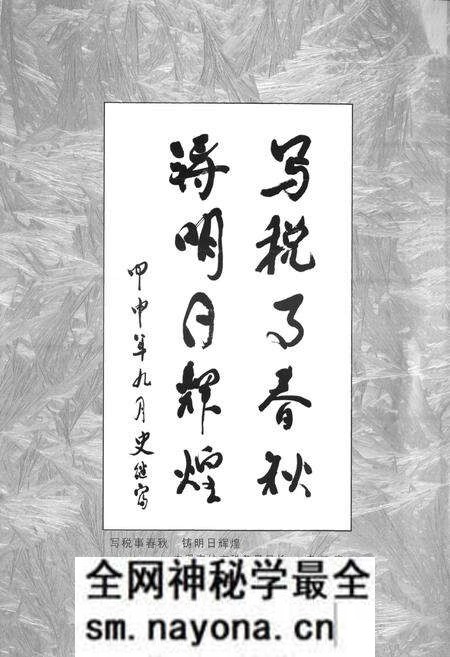 写税事春秋
铸明日辉煌
甲申年九月史继富
写税事春秋 铸明日辉煌
全网神秘学最全
sm.nayona.cn